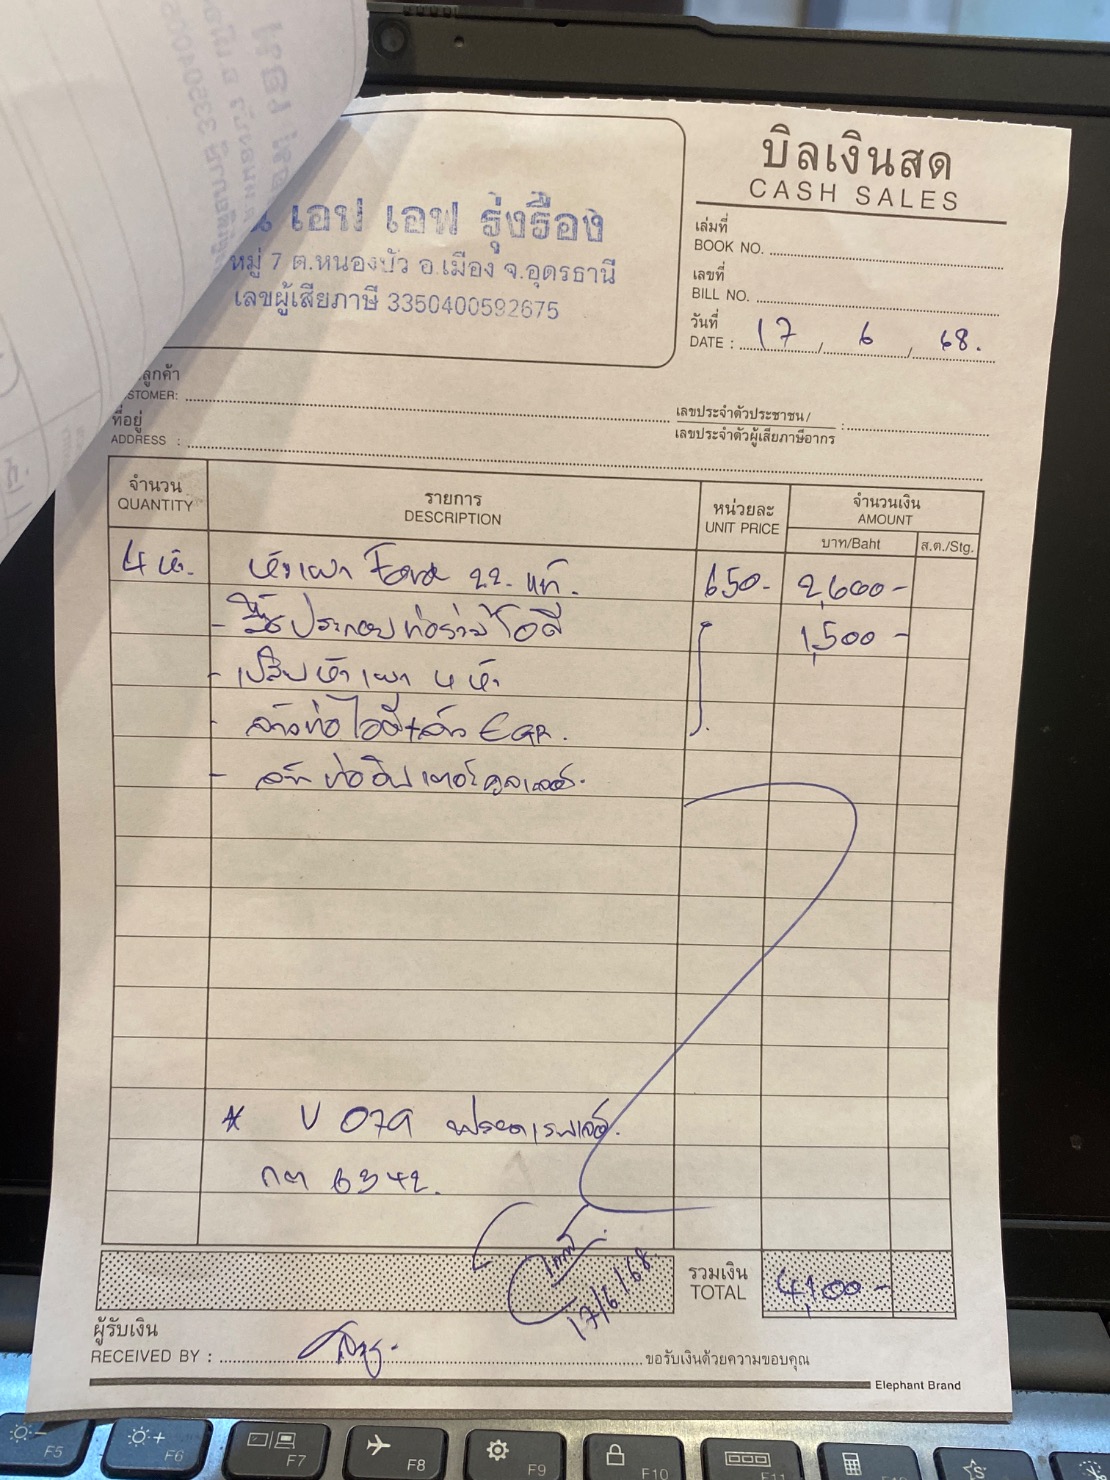 บิลเงินสด
CASH SALES
เอฟ เอฟ รุ่งรือง
หมู่ 7 ต.หนองบัว อ.เมือง จ.อุดรธานี
เลขผู้เสียภาษี 3350400592675
เล่มที่
BOOK NO.
เลขที่
BILL NO.
วันที่
DATE : 17 / 6 / 68.
ลูกค้า
STOMER:
ที่อยู่
ADDRESS :
เลขประจำตัวประชาชน/
เลขประจำตัวผู้เสียภาษีอากร :
จำนวน รายการ หน่วยละ จำนวนเงิน
QUANTITY DESCRIPTION UNIT PRICE AMOUNT
บาท/Baht ส.ต./Stg.
4 หัว. หัวเผา Ford 2.2. แท้. 650.- 2,600-
- ประกอบท่อร่วมไอดี 1,500-
- เปลี่ยนหัวเผา 4 หัว
- ล้างท่อไอดี+ล้าง EGR.
- ล้างท่ออินเตอร์คูลเลอร์.
* V 079
กต 6342.
17/6/68
รวมเงิน
TOTAL 4,100-
ผู้รับเงิน
RECEIVED BY : ขอรับเงินด้วยความขอบคุณ
Elephant Brand
F5
F6
F7
F8
F9
F10
F11